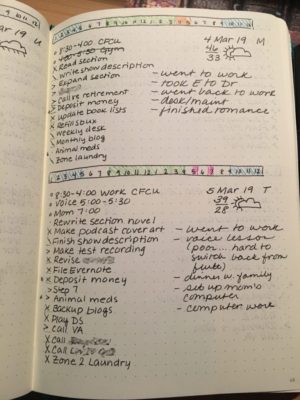 1 2 3 4 5 6 7 8 9 10 11 12 1 2 3 4 5 6 7 8 9 10 11 12
o 8:30-4:00 CFCU
4 Mar 19 M
o 4:00-5:30 Gym
46
33
x Read section
\ Write show description
> Expand section
x Call re retirement
x Deposit money
x Update book lists
x Refill Sbux
\ Weekly desk
\ Monthly blog
Animal meds
Zone laundry
- went to work
- took E to Dr
- went back to work
- desk/maint
- finished romance
1 2 3 4 5 6 7 8 9 10 11 12 1 2 3 4 5 6 7 8 9 10 11 12
o 8:30-4:00 Work CFCU
5 Mar 19 T
o Voice 5:00-5:30
39
28
o Mom 7:00
x Rewrite section novel
x Make podcast cover art
\ Finish show description
x Make test recording
x Revise
x File Evernote
x Deposit money
> Step 7
> Animal meds
x Backup blogs
x Play DS
> Call VA
x Call
x Call
x Zone 2 Laundry
- went to work
- voice lesson
(poor... hard to
switch back from
flute)
- dinner w. family
- set up mom's
computer
- computer work